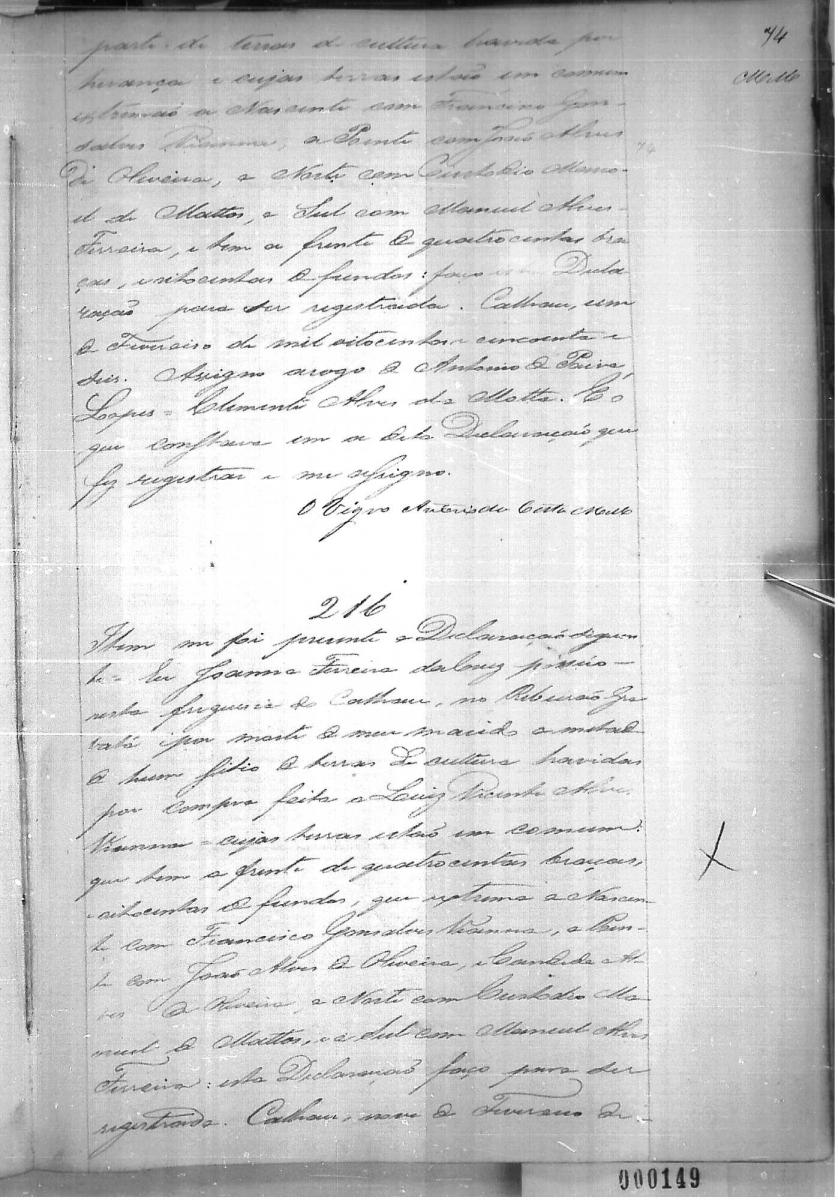 74
MeMo
parte de terras de cultura havida por
herança e cujas terras estão em comum
extremão a Nascente com Francisco Gon-
salves Vianna, a Poente com João Alves
De Oliveira, a Norte com Custodio Mano-
el de Mattos, a Sul com Manuel Alves
Ferreira, e tem a frente de quatrocentas bra
ças, e oitocentas de fundos: faço esta Decla
ração para ser registrada. Calhau, um
de Fevereiro de mil oitocentos e cincoenta e
seis. Assigno arogo de Antonio de Paiva
Lopes = Clemente Alves da Motta. E o
que constava em a dita Declaração que
fiz registrar e me assigno.
O Vigro Antonio da Costa Mello
216
Item me foi presente a Declaração seguin
te = Eu Joanna Ferreira da Cruz possúo
nesta freguesia do Calhau, no Ribeirão Gra
vatá por morte de meu marido a metade
de hum sitio de terras de cultura havidas
por compra feita a Luiz Vicente Alves
Vianna = cujas terras estão em comum:
que tem a frente de quatrocentas braças,
e oitocentas de fundos, que extrema a Nascen-
te com Francisco Gonsalves Vianna, a Poen-
te com João Alves de Oliveira, e Candida Al
ves de Oliveira, a Norte com Custodio Ma-
nuel de Mattos, e a Sul com Manuel Alves
Ferreira: esta Declaração faço para ser
registrada. Calhau, nove de Fevereiro de-
000149